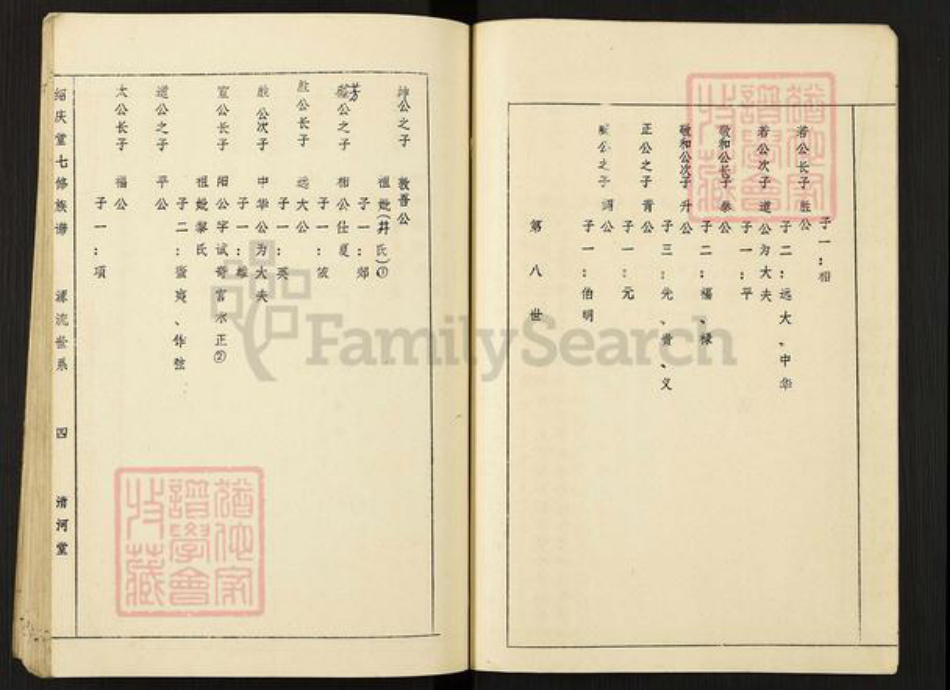 子一：相
若公长子 胜公
子二：远大、中华
若公次子 道公为大夫
子一：平
敬和公长子 泰公
子二：福、禄
敬和公次子 升公
子三：光、贵、义
正公之子 青公
子一：元
公之子 公
子一：伯明
第八世
坤公之子 敦善公
祖妣（井氏）①
子一：郯
芳公之子 相公仕夏
子一：
胜公长子 远大公
子一：英
胜公次子 中华公为大夫
子一：雄
宣公长子 阳公字试奇官水正②
祖妣黎氏
子二：蛮夷、作弦
道公之子 平公
太公长子 福公
子一：项
绍庆堂七修族谱 源流世系 四 清河堂
谱学会
收藏
FamilySearch